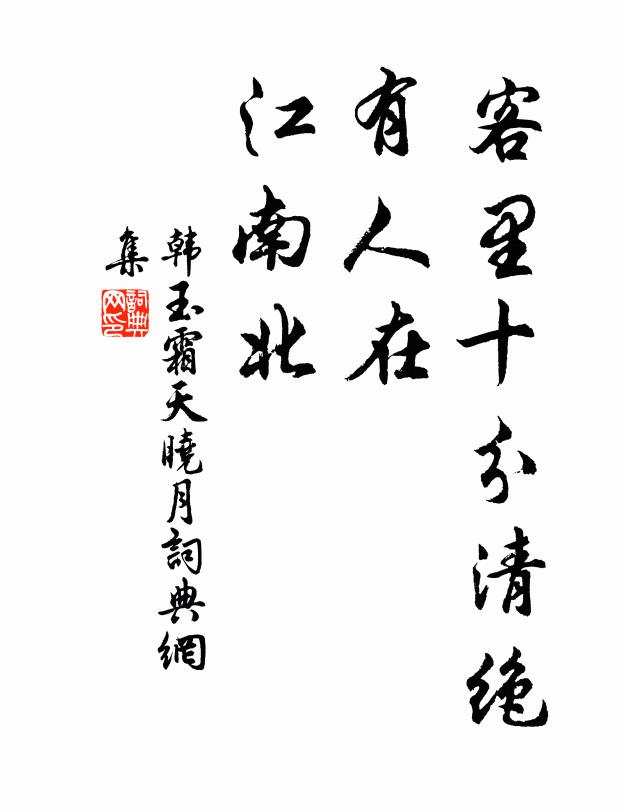 客里十分清绝
有人在
江南北
韩玉霜天曉月詞典網
集
詞典网印